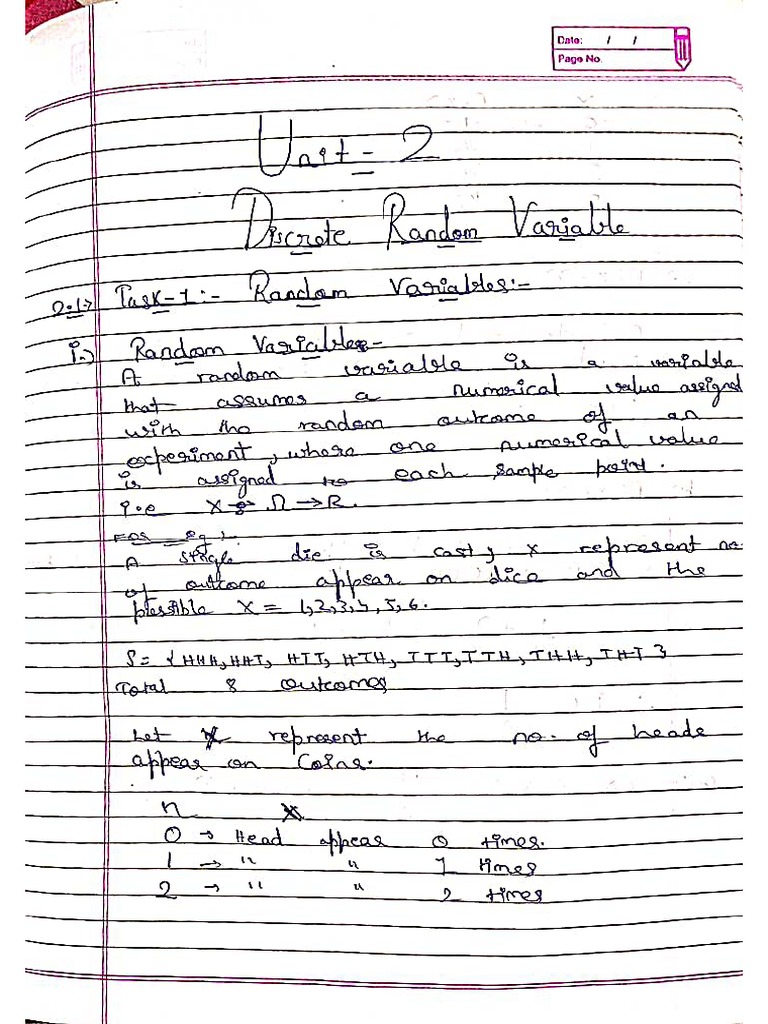 Date: / /
Page No.
Unit - 2
Discrete Random Variable
2.1> Task-1:- Random Variables:-
i.) Random Variables-
A random variable is a variable
that assumes a numerical value assigned
with the random outcome of an
experiment, where one numerical value
is assigned to each sample point.
i.e X: Ω → R.
For eg:
A single die is cast, x represent no.
of outcome appear on dice and the
possible X = 1,2,3,4,5,6.
S= {HHH, HHT, HTT, HTH, TTT, TTH, THH, THT}
Total 8 outcomes
Let X represent the no. of heads
appear on Coins.
n X
0 → Head appear 0 times.
1 → " " 1 times
2 → " " 2 times